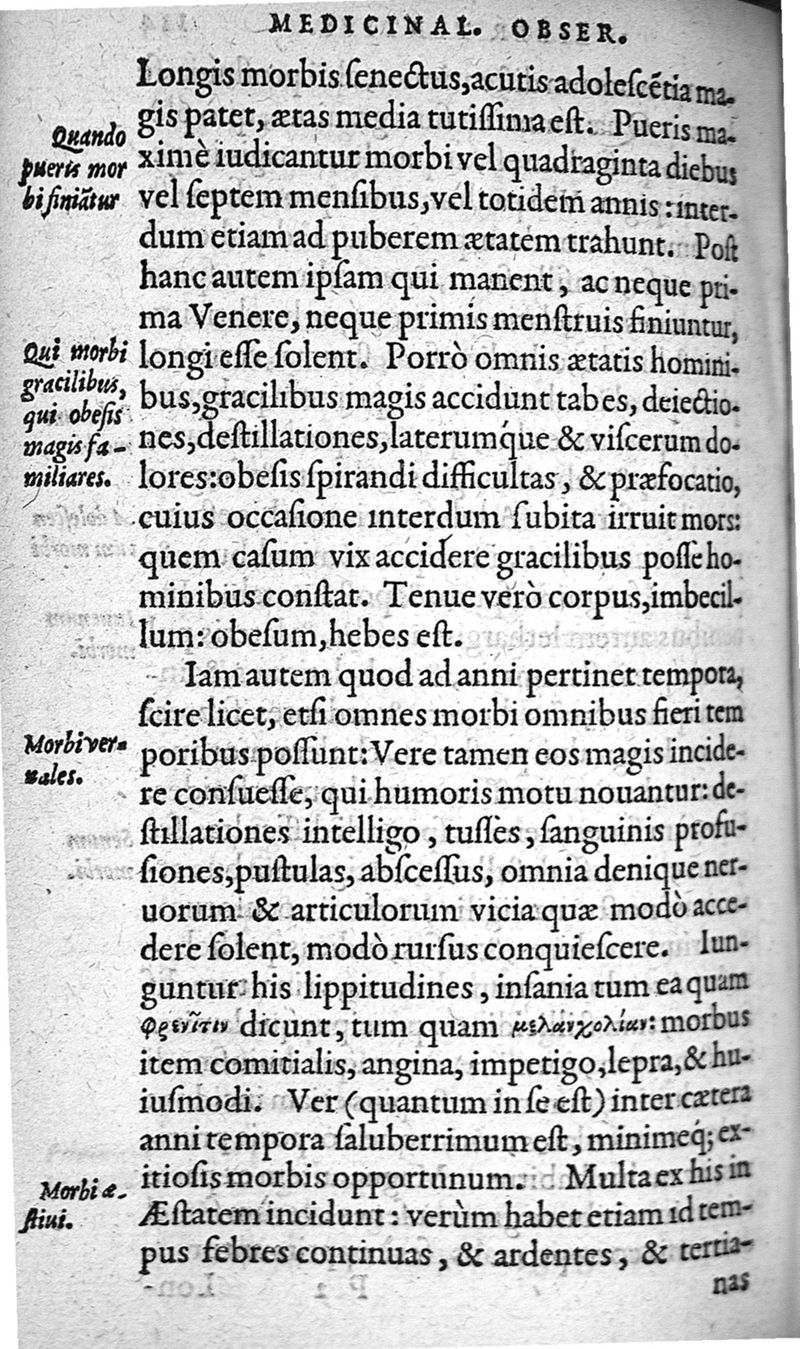 MEDICINAL. OBSER.
Longis morbis ſenectus,acutis adoleſcẽtia ma-
gis patet, ætas media tutiſſima eſt. Pueris ma-
Quando
pueris mor
bi finiãtur
ximè iudicantur morbi vel quadraginta diebus
vel ſeptem menſibus,vel totidem annis : inter-
dum etiam ad puberem ætatem trahunt. Poſt
hanc autem ipſam qui manent, ac neque pri-
ma Venere, neque primis menſtruis finiuntur,
Qui morbi
gracilibus,
qui obeſis
magis fa-
miliares.
longi eſſe ſolent. Porrò omnis ætatis homini-
bus,gracilibus magis accidunt tabes, deiectio-
nes,deſtillationes,laterumq́ue & viſcerum do-
lores:obeſis ſpirandi difficultas, & præfocatio,
cuius occaſione interdum ſubita irruit mors:
quem caſum vix accidere gracilibus poſſe ho-
minibus conſtat. Tenue verò corpus,imbecil-
lum: obeſum,hebes eſt.
Iam autem quod ad anni pertinet tempora,
ſcire licet, etſi omnes morbi omnibus fieri tem
Morbi ver-
nales.
poribus poſſunt: Vere tamen eos magis incide-
re conſueſſe, qui humoris motu nouantur: de-
ſtillationes intelligo, tuſſes, ſanguinis profu-
ſiones,puſtulas, abſceſſus, omnia denique ner-
uorum & articulorum vicia quæ modò acce-
dere ſolent, modò rurſus conquieſcere. Iun-
guntur his lippitudines, inſania tum ea quam
φρενῖτιν dicunt, tum quam μελανχολίαν: morbus
item comitialis, angina, impetigo,lepra,& hu-
iuſmodi. Ver (quantum in ſe eſt) inter cætera
anni tempora ſaluberrimum eſt, minimeq́; ex-
Morbi æ-
ſtiui.
itioſis morbis opportunum. Multa ex his in
Æſtatem incidunt : verùm habet etiam id tem-
pus febres continuas, & ardentes, & tertia-
nas